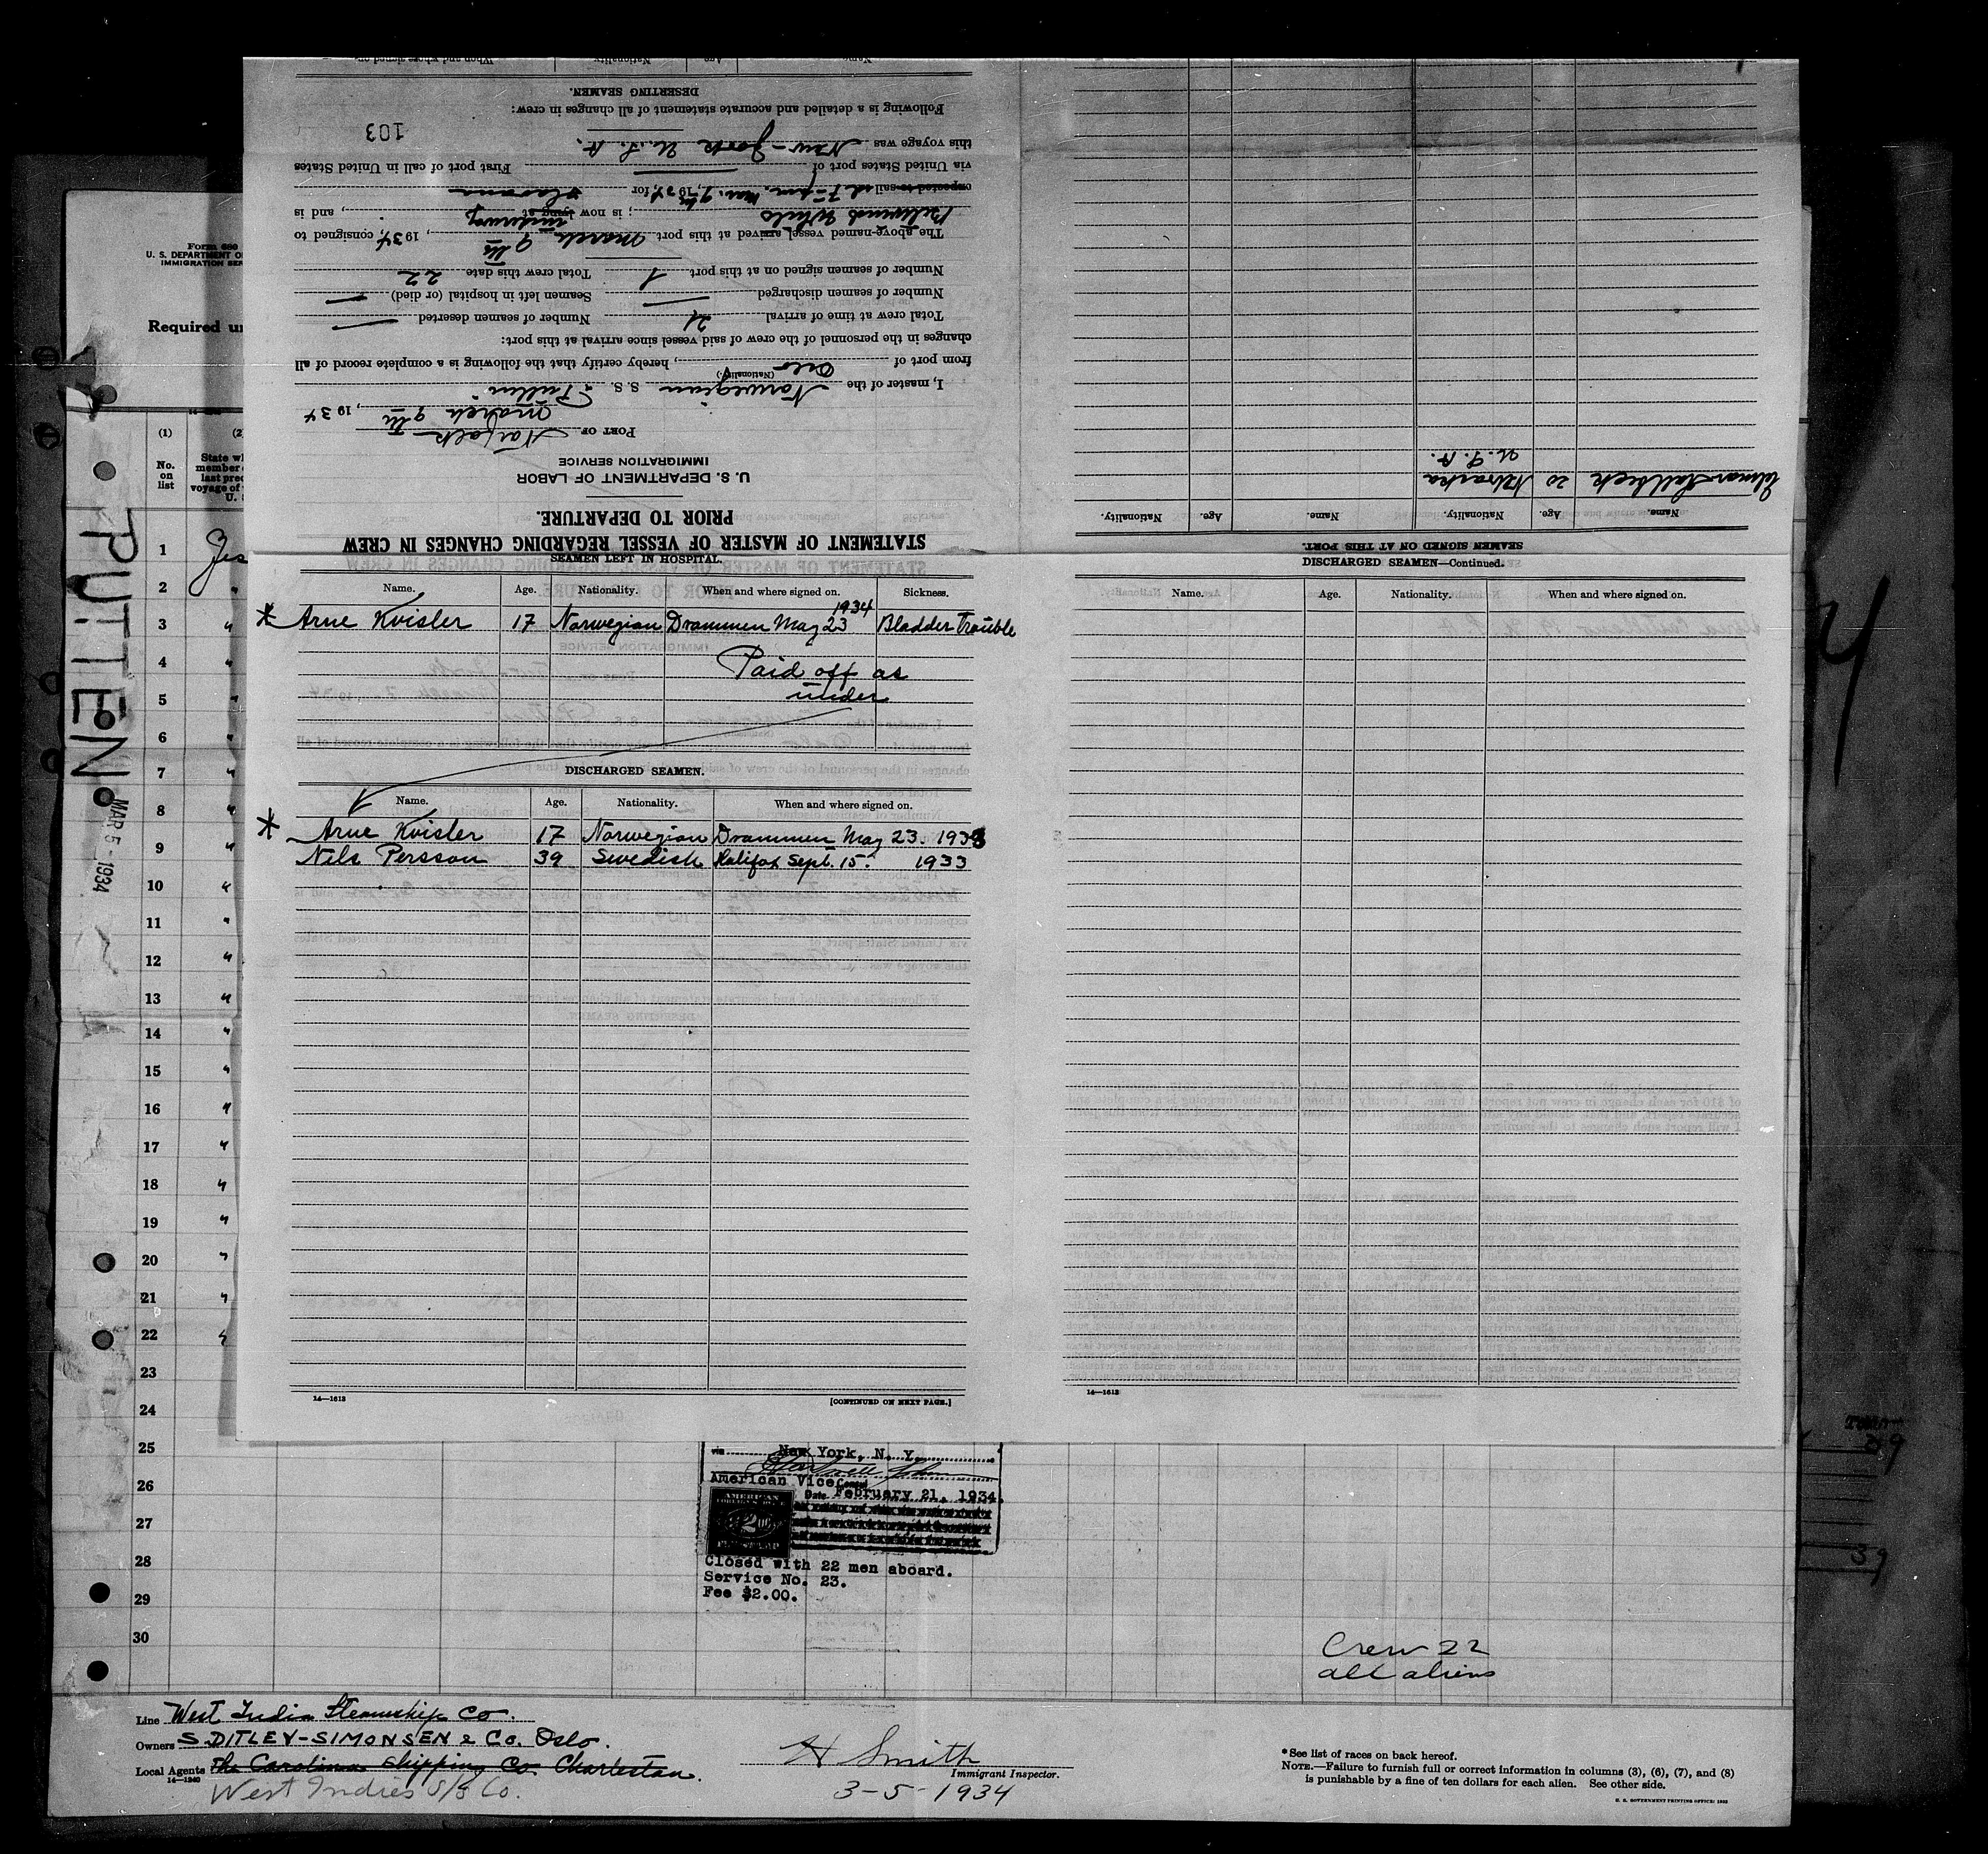 Form 680
U. S. DEPARTMENT O
IMMIGRATION SER
Required u
PUTTEN
MAR 5 - 1934
(1) (2)
No. on list
State wh
member
last prec
voyage of
U. S
1 Yes
2 "
3 "
4 "
5 "
6 "
7 "
8 "
9 "
10 "
11 "
12 "
13 "
14 "
15 "
16 "
17 "
18 "
19 "
20 "
21 "
22 "
23
24
25
26
27
28
29
30
STATEMENT OF MASTER OF VESSEL REGARDING CHANGES IN CREW
PRIOR TO DEPARTURE.
U. S. DEPARTMENT OF LABOR
IMMIGRATION SERVICE
PORT OF Norfolk
March 9th, 1934
I, master of the Norwegian S. S. Putten
(Nationality.)
from port of Oslo, hereby certify that the following is a complete record of all
changes in the personnel of the crew of said vessel since arrival at this port:
Total crew at time of arrival 21 Number of seamen deserted —
Number of seamen discharged — Seamen left in hospital (or died) —
Number of seamen signed on at this port 1 Total crew this date 22
The above-named vessel arrived at this port March 9th, 1934, consigned to
; is now lying at underway, and is
expected to sail , Mar. 9th, 1934, for Havana
via United States port of — First port of call in United States
this voyage was New-York U. S. A.
103
Following is a detailed and accurate statement of all changes in crew:
DESERTING SEAMEN.
Name. Age Nationality When and where signed on
SEAMEN SIGNED ON AT THIS PORT.
Name. Age. Nationality. Name. Age. Nationality.
20 Nebraska
U. S. A.
SEAMEN LEFT IN HOSPITAL.
Name. Age. Nationality. When and where signed on. Sickness.
* Arne Kvisler 17 Norwegian Drammen May 23 1934 Bladder Trouble
Paid off as
under
DISCHARGED SEAMEN.
Name. Age. Nationality. When and where signed on.
* Arne Kvisler 17 Norwegian Drammen May 23. 1933
Nils Persson 39 Swedish Halifax Sept. 15. 1933
14—1613 [CONTINUED ON NEXT PAGE.]
DISCHARGED SEAMEN—Continued.
Name. Age. Nationality. When and where signed on.
14—1613
via New York, N. Y.
American Vice Consul
Date February 21, 1934.
Closed with 22 men aboard.
Service No. 23.
Fee $2.00.
Crew 22
all aliens
Line West India Steamship Co.
Owners S. DITLEV-SIMONSEN & Co. Oslo.
Local Agents The Carolina Shipping Co. Charleston.
14—1240
West Indies S/S Co.
H Smith
Immigrant Inspector.
3-5-1934
*See list of races on back hereof.
NOTE.—Failure to furnish full or correct information in columns (3), (6), (7), and (8)
is punishable by a fine of ten dollars for each alien. See other side.
39